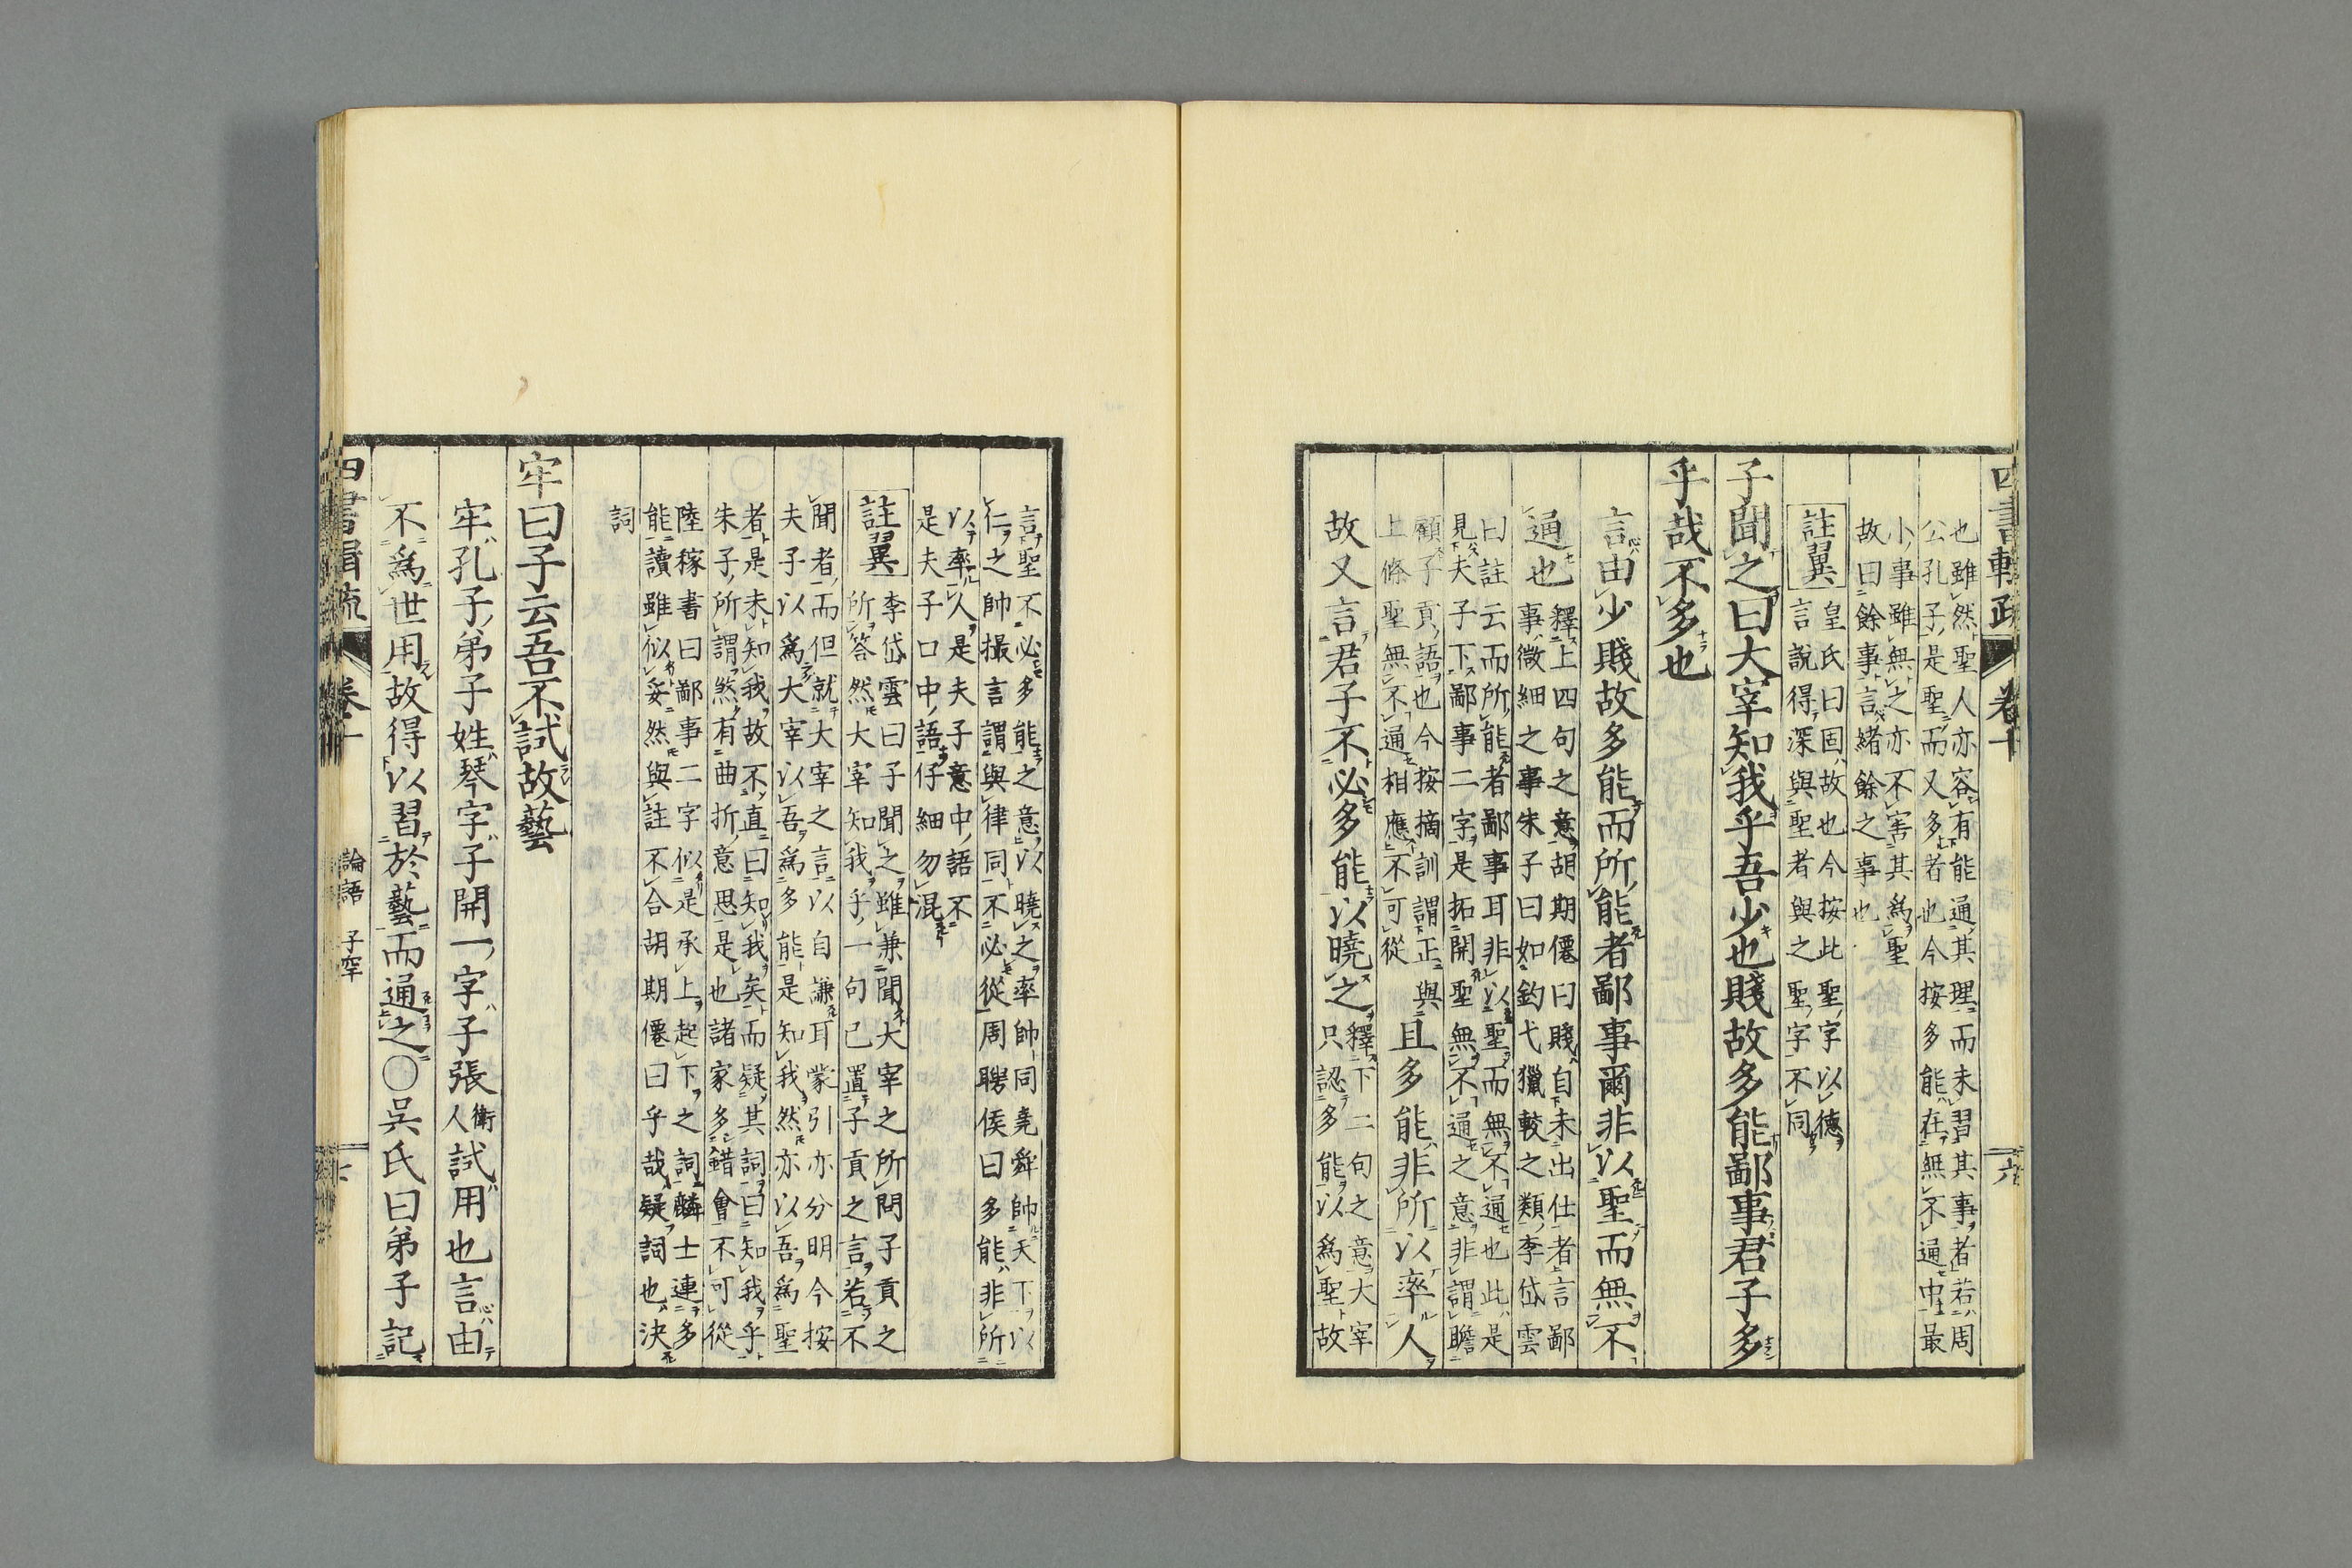 四書輯疏 卷十 六
也雖然聖人亦容有能通其理而未習其事者若周
公孔子是聖而又多者也今按多能在無不通中最
小事雖無之亦不害其爲聖
故曰餘事言緒餘之事也
註翼 皇氏曰固故也今按此聖字以德
言説得深與聖者與之聖字不同
子聞之曰大宰知我乎吾少也賤故多能鄙事君子多
乎哉不多也
言由少賤故多能而所能者鄙事爾非以聖而無不
通也 釋上四句之意胡期僊曰賤自未出仕者言鄙
事微細之事朱子曰如釣弋獵較之類李岱雲
曰註云而所能者鄙事耳非以聖而無不通也此是
見夫子下鄙事二字是拓開聖無不通之意非謂瞻
顧子貢語也今按摘訓謂正與
上條聖無不通相應不可從
且多能非所以率人
故又言君子不必多能以曉之 釋下二句之意大宰
只認多能以爲聖故
言聖不必多能之意以曉之率帥同堯舜帥天下以
仁之帥撮言謂與律同不必從周聘侯曰多能非所
以率人是夫子意中語不
是夫子口中語仔細勿混
註翼 李岱雲曰子聞之雖兼聞大宰之所問子貢之
所答然大宰知我乎一句已置子貢之言若不
聞者而但就大宰之言以自謙耳蒙引亦分明今按
夫子以爲大宰以吾爲多能是知我然亦以吾爲聖
者是未知我故不直曰知我矣而疑其詞曰知我乎
朱子所謂煞有曲折意思是也諸家多錯會不可從
陸稼書曰鄙事二字似是承上起下之詞麟士連多
能讀雖似妥然與註不合胡期僊曰乎哉疑詞也決
詞
牢曰子云吾不試故藝
牢孔子弟子姓琴字子開一字子張 衛
人 試用也言由
不爲世用故得以習於藝而通之〇吳氏曰弟子記
四書輯疏 卷十 論語 子罕